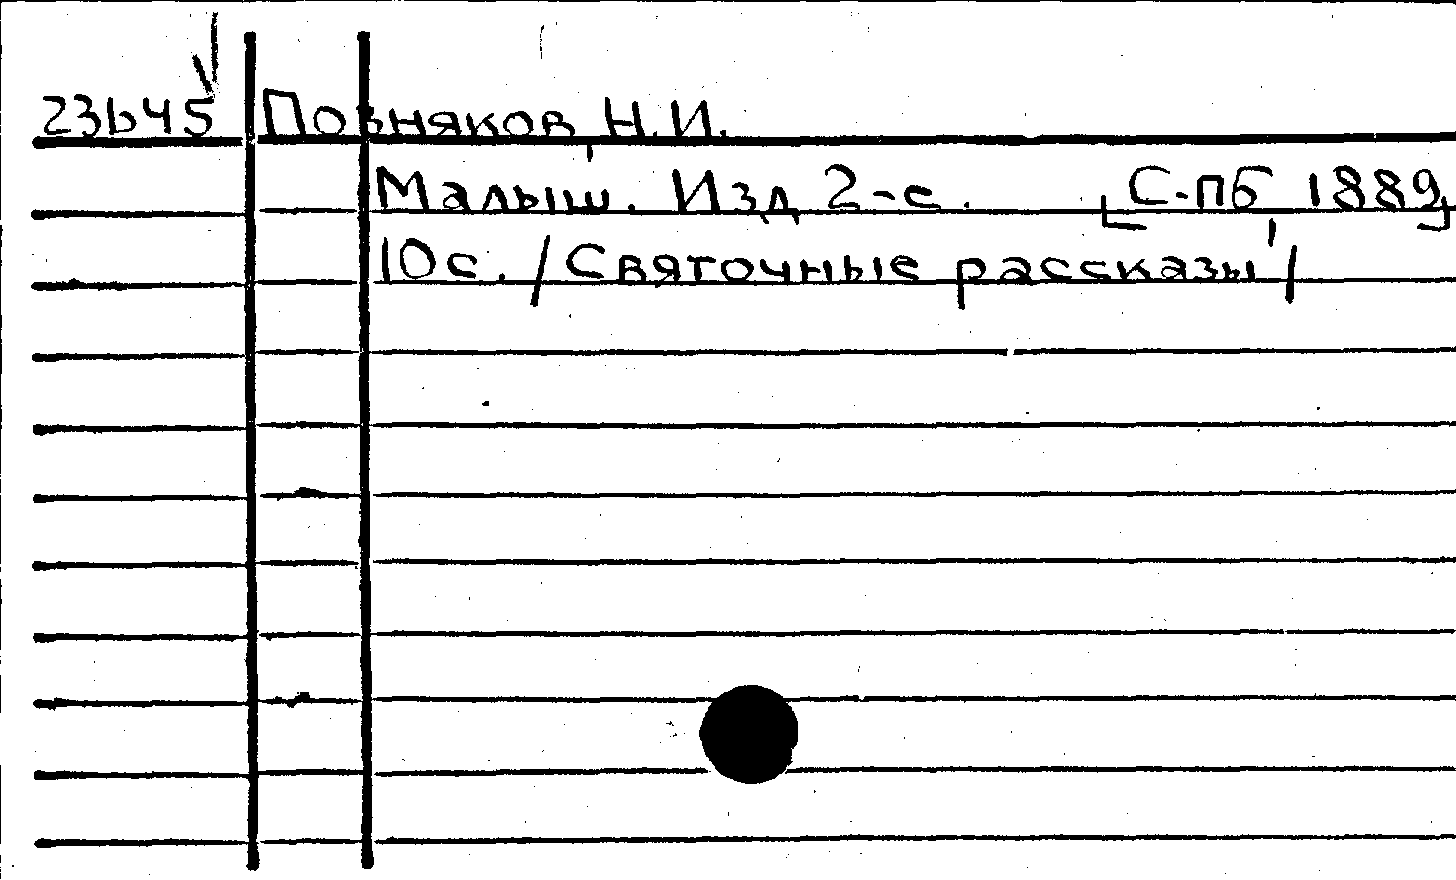 23b45 Позняков Н.И.
Малыш. Изд 2-е. [С-пб 1889]
10с. /Святочные рассказы/